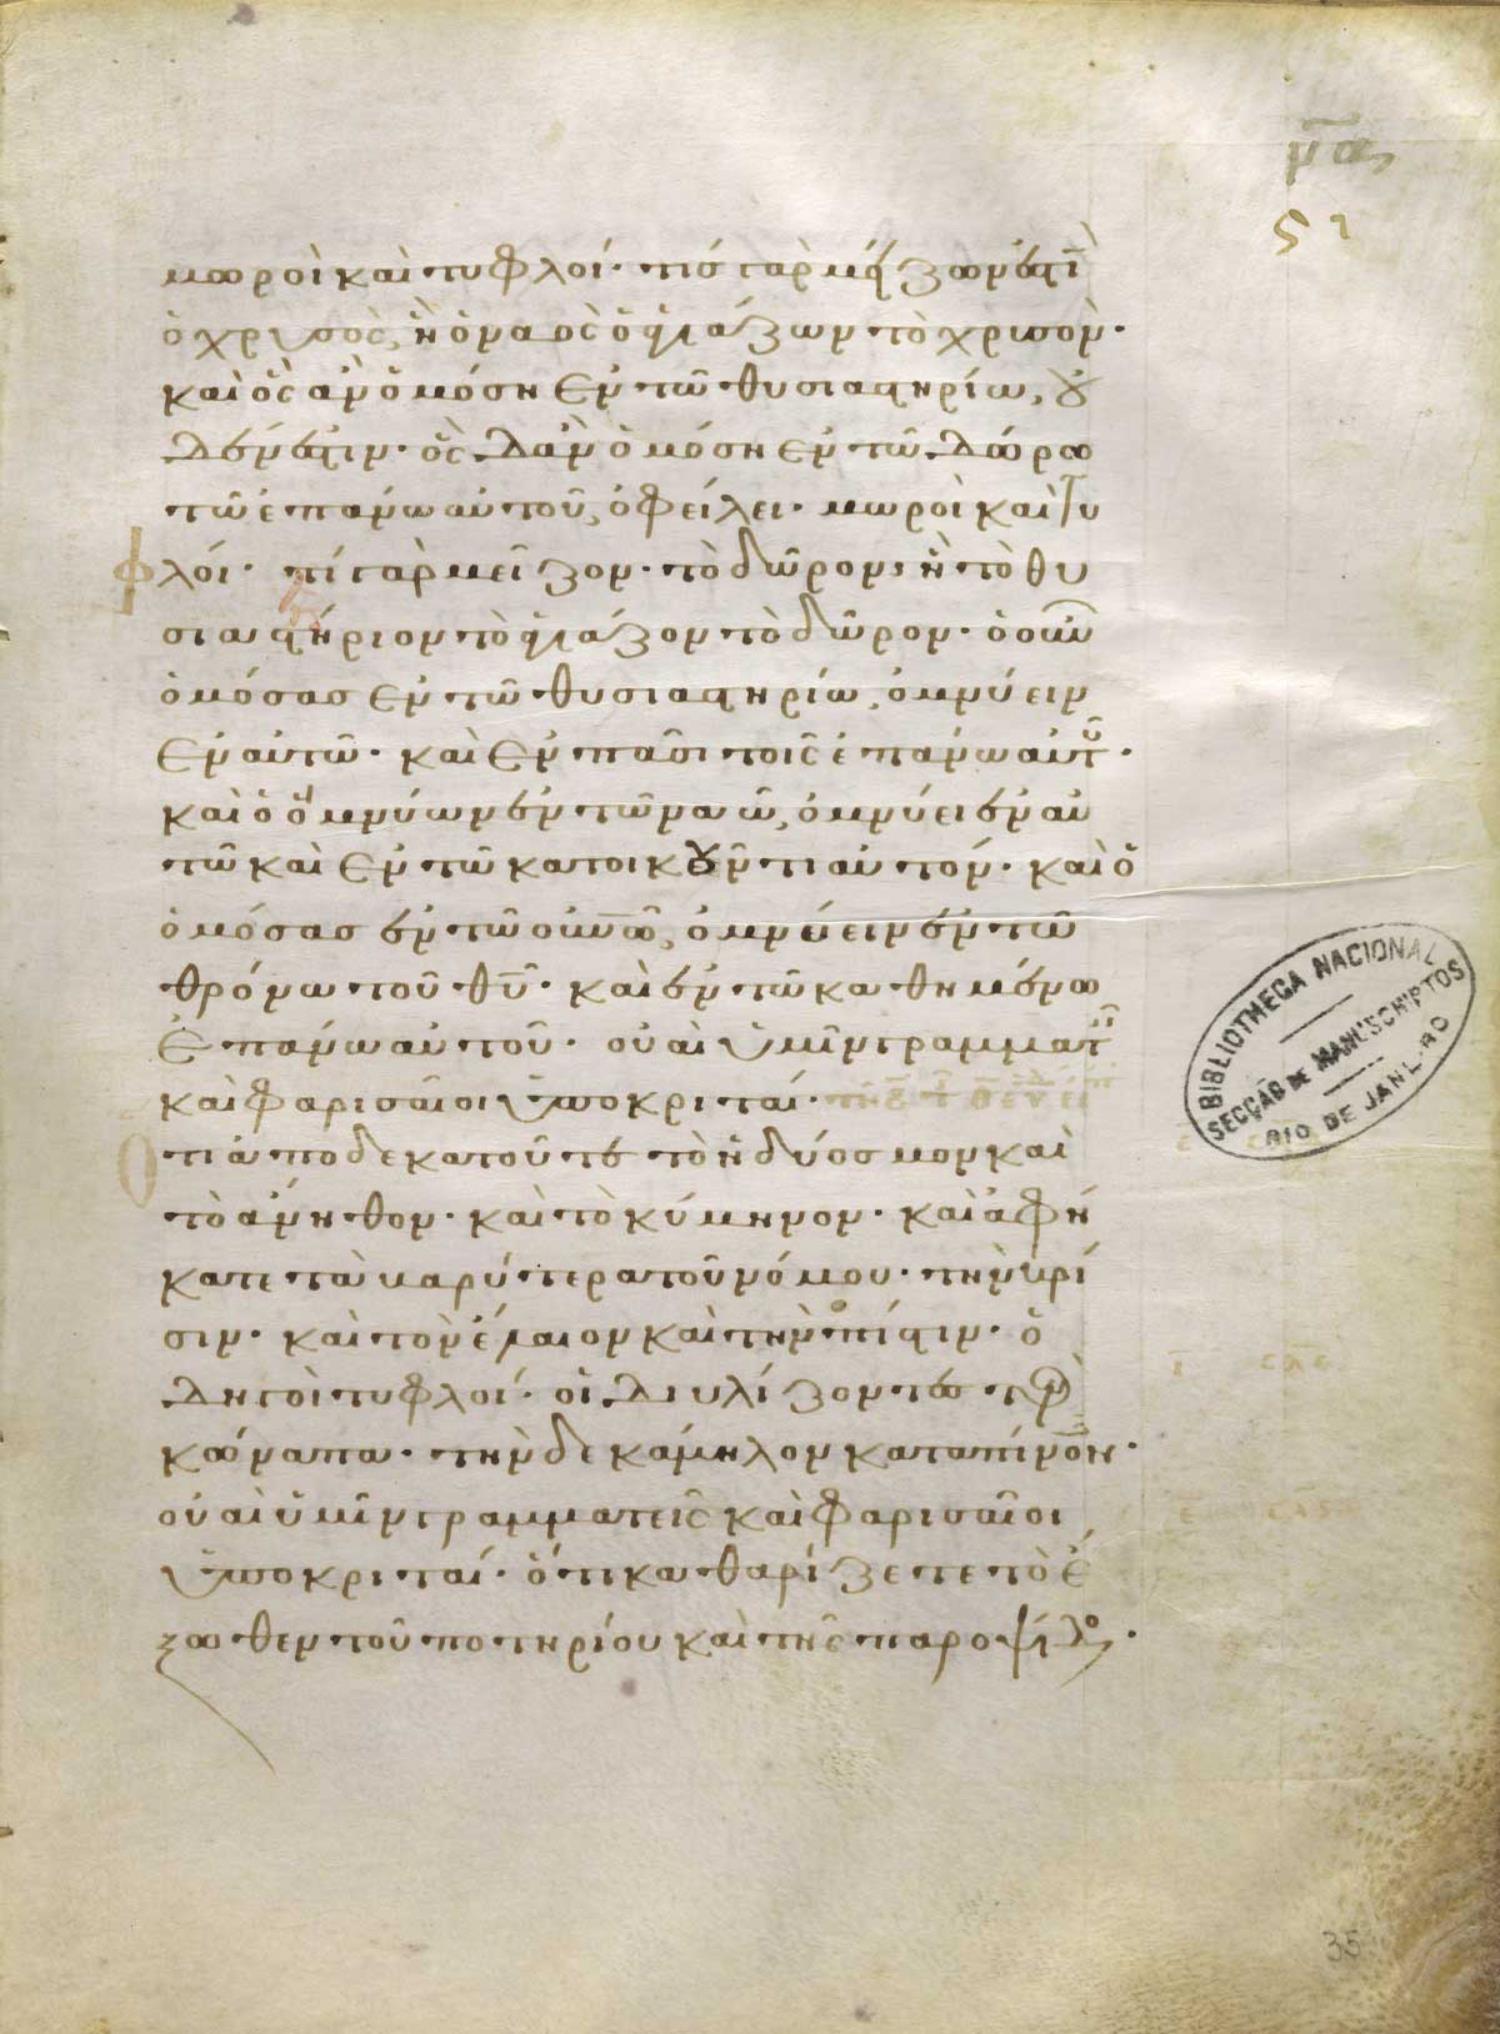 μωροὶ καὶ τυφλοί· τίσ γὰρ μείζων ἐστὶ
ὁ χρυσὸς, ἢ ὁ ναὸς ὁ ἁγιάζων τὸ χρισὸν·
καὶ ὃς ἀν ὀμόση ἐν τῶ θυσιαστηρίω, οὐ
δέν ἐστιν· ὃς δἀν ὀμόση ἐν τῶ δώρω
τῶ ἐπάνω αὐτοῦ, ὀφείλει· μωροὶ καὶ τυ
φλόι· τί γὰρ μεῖζον· τὸ δῶρον, ἢ τὸ θυ
σιαστήριον τὸ ἁγιάζον τὸ δῶρον· ὁ οὖν
ὀμόσασ ἐν τῶ θυσιαστηρίω, ὀμνύειν
ἐν αὐτῶ· καὶ ἐν πᾶσι τοῖς ἐπάνω αὐτοῦ·
καὶ ὁ ὀμνύων ἐν τῶ ναῶ, ὀμνύει ἐν αὐ
τῶ καὶ ἐν τῶ κατοικοῦντι αὐτόν· καὶ ὁ
ὀμόσασ ἐν τῶ οὐνῶ, ὀμνύειν ἐν τῶ
θρόνω τοῦ θυ· καὶ ἐν τῶ καθημένω
ἐπάνω αὐτοῦ· οὐαὶ ὑμῖν γραμματεῖς
καὶ φαρισαῖοι ὑποκριταί·
Ὁτι ἀποδεκατοῦτε τὸ ἡδύοσμον καὶ
τὸ ἄνηθον· καὶ τὸ κύμηνον· καὶ ἀφή
κατε τὰ βαρύτερα τοῦ νόμου· τὴν κρί
σιν· καὶ τὸν ἔλαιον καὶ τὴν πίστιν· ὁ
δηγοὶ τυφλοί· οἱ διυλίζοντεσ τὸν
κώναπα· τὴν δε κάμηλον καταπίνοντες·
οὐαὶ ὑμῖν γραμματεῖς καὶ φαρισαῖοι
ὑποκριταί· ὅτι καθαρίζετε τὸ ἔ
ξωθεν τοῦ ποτηρίου καὶ τῆς παροψίδος·
BIBLIOTHECA NACIONAL
SECÇÃO DE MANUSCRIPTOS
RIO DE JANEIRO
35